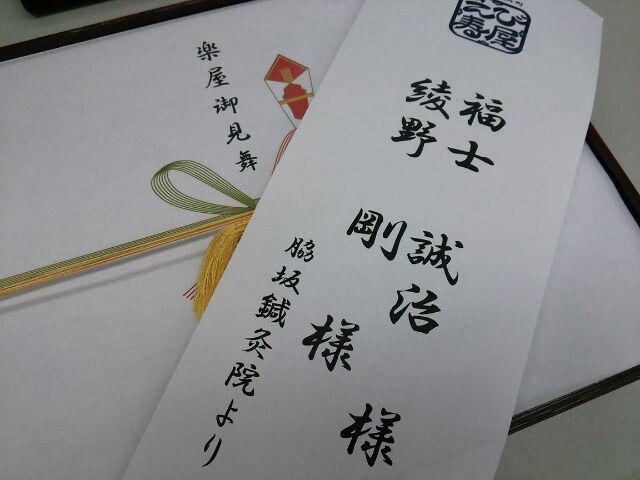 楽屋御見舞
えび寿屋
福士 誠治 様
綾野 剛 様
脇坂鍼灸院より